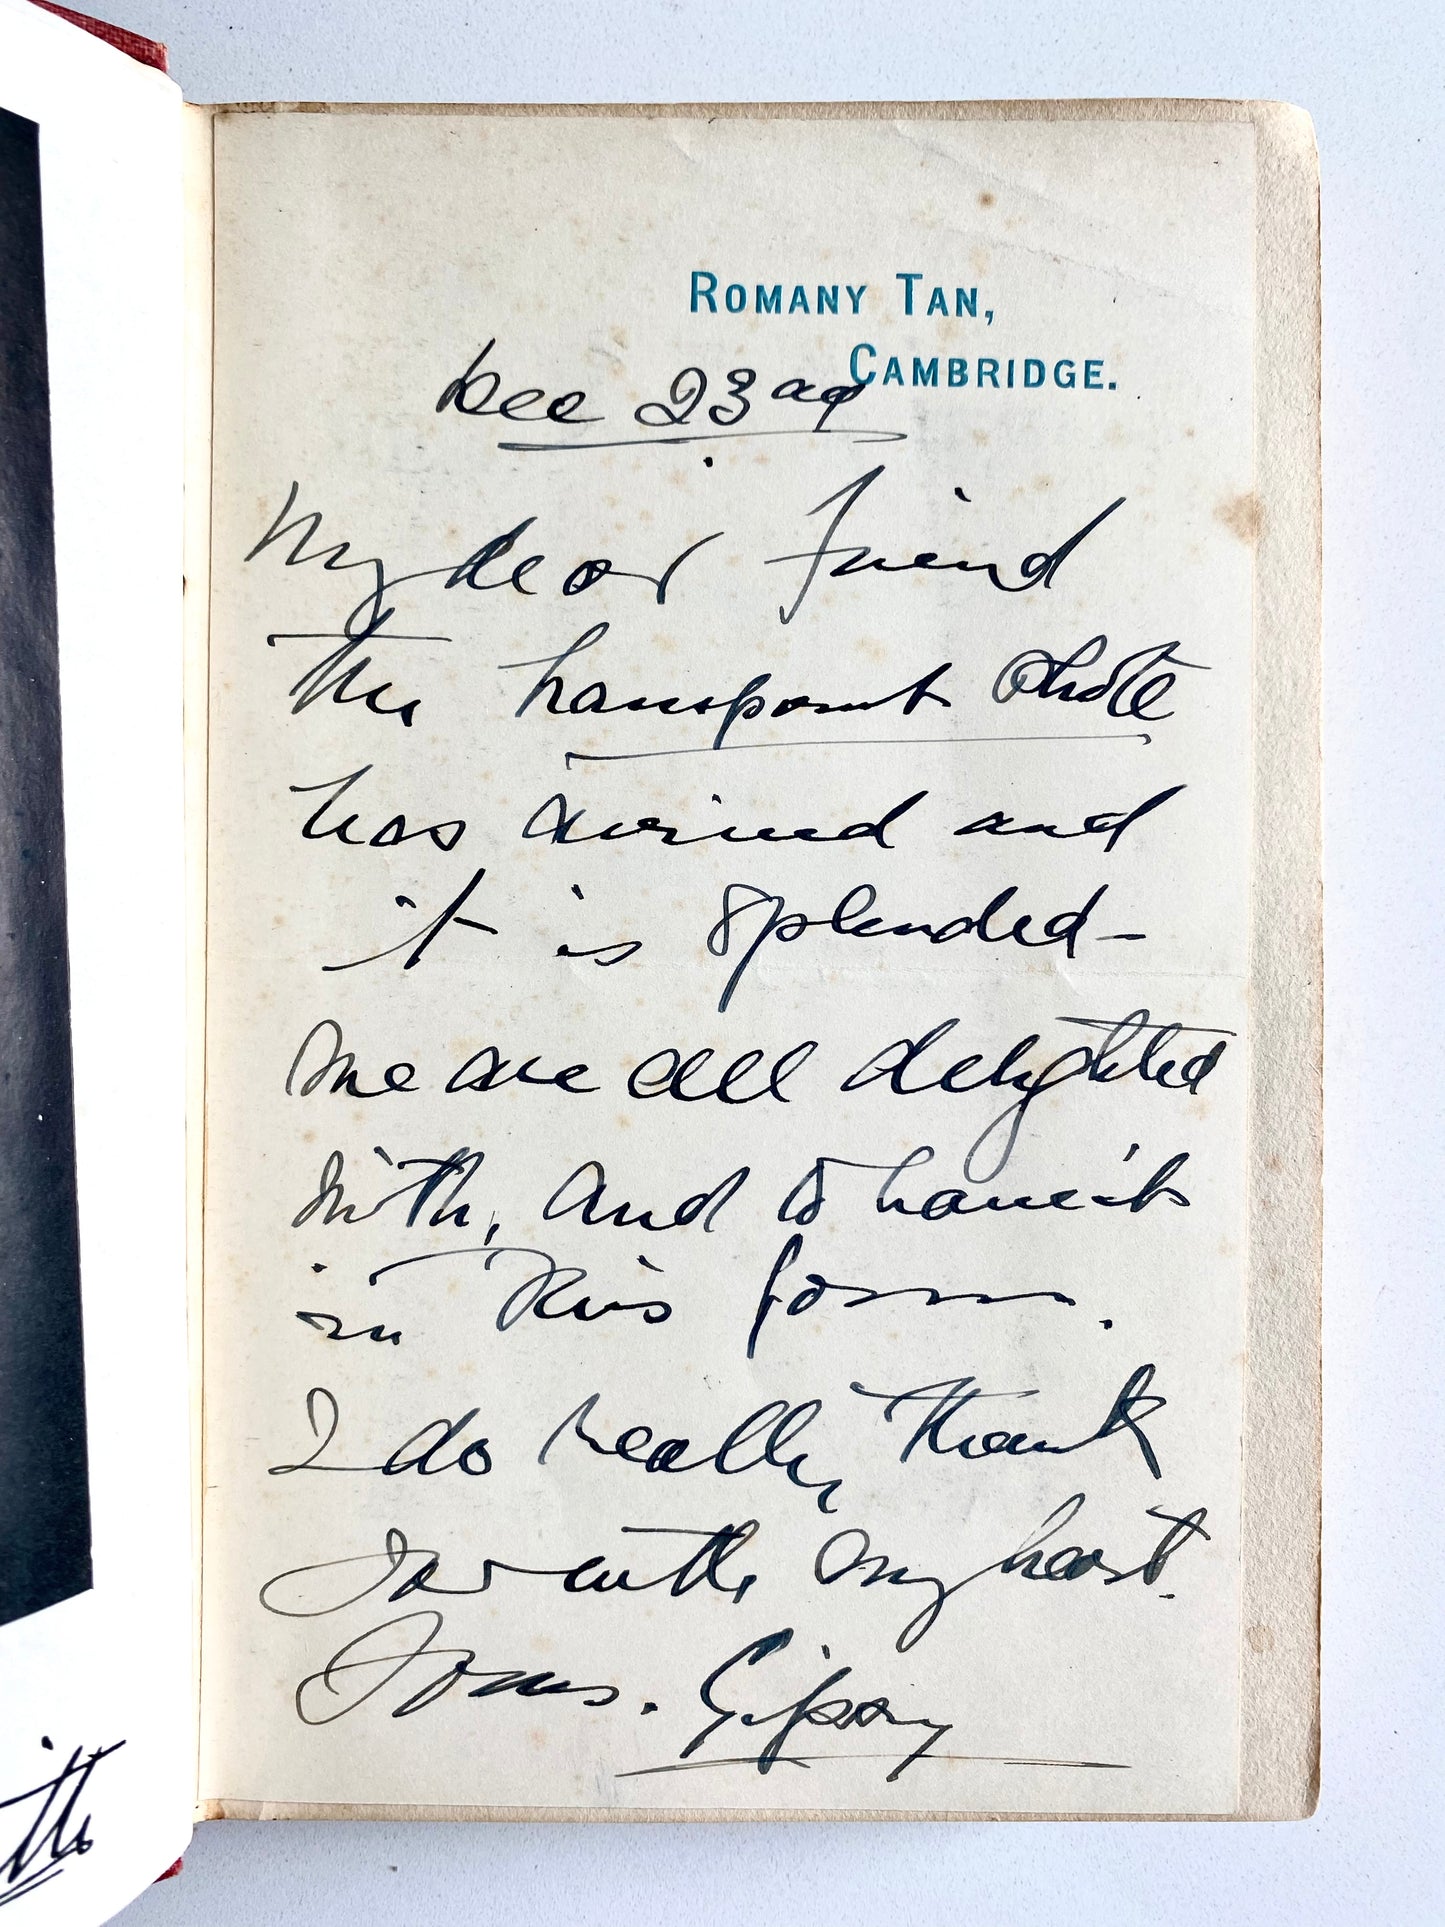 ROMANY TAN,
CAMBRIDGE.
Dec 23rd
My dear Friend
The transparent Photo
has arrived and
it is splended -
we are all delighted
with, and to have it
in this form.
I do really thank
you with my heart.
Yours. Gipsy